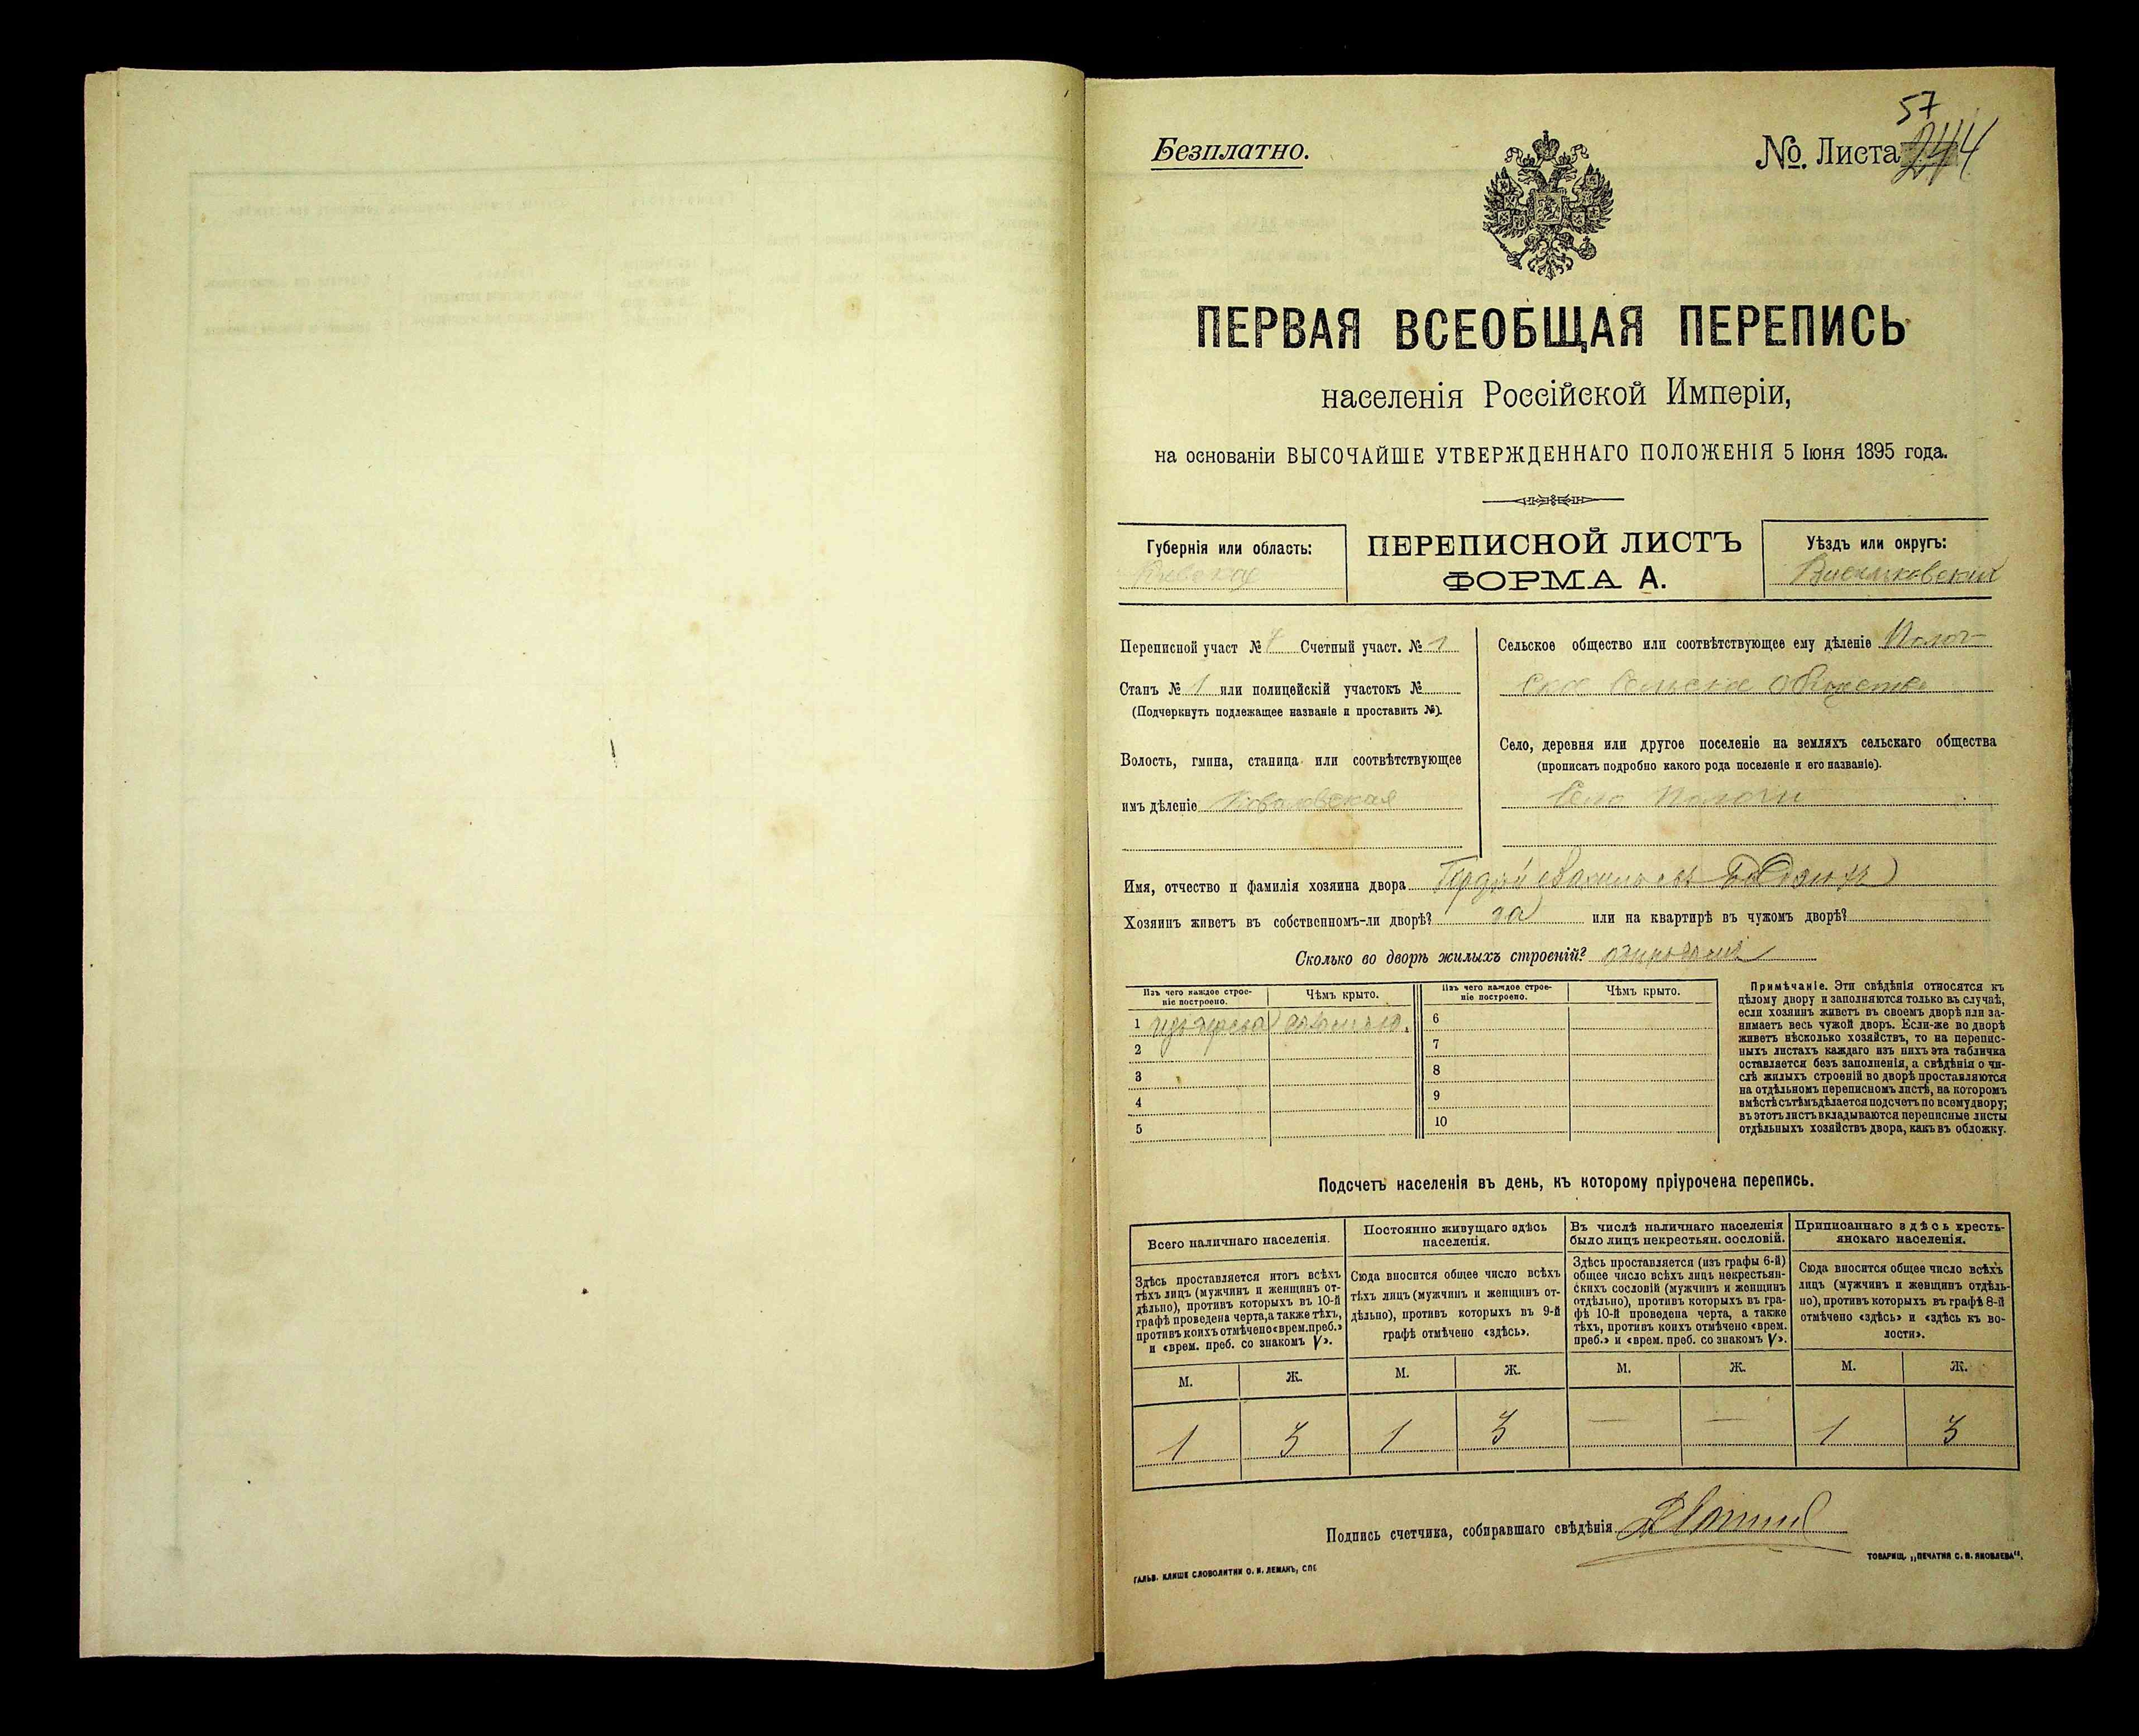 57
Безплатно.
№. Листа 244
ПЕРВАЯ ВСЕОБЩАЯ ПЕРЕПИСЬ
населенія Россійской Имперіи,
на основаніи ВЫСОЧАЙШЕ УТВЕРЖДЕННАГО ПОЛОЖЕНІЯ 5 Іюня 1895 года.
Губернія или область:
Кіевская
ПЕРЕПИСНОЙ ЛИСТЪ
ФОРМА А.
Уѣздъ или округъ:
Васильковскій
Переписной участ № 7 Счетный участ. № 1
Станъ № 1 или полицейскій участокъ №
(Подчеркнуть подлежащее названіе и проставить №).
Волость, гмина, станица или соотвѣтствующее
имъ дѣленіе Ковалевская
Сельское общество или соотвѣтствующее ему дѣленіе Полог-
ское сельское общество
Село, деревня или другое поселеніе на земляхъ сельскаго общества
(прописать подробно какого рода поселеніе и его названіе).
Село Пологи
Имя, отчество и фамилія хозяина двора Гордѣй
Хозяинъ живетъ въ собственномъ-ли дворѣ? да или на квартирѣ въ чужомъ дворѣ?
Сколько во дворѣ жилыхъ строеній?
Изъ чего каждое строе-
ніе построено.
Чѣмъ крыто.
1 изъ дерева соломою.
2
3
4
5
Изъ чего каждое строе-
ніе построено.
Чѣмъ крыто.
6
7
8
9
10
Примѣчаніе. Эти свѣдѣнія относятся къ
цѣлому двору и заполняются только въ случаѣ,
если хозяинъ живетъ въ своемъ дворѣ или за-
нимаетъ весь чужой дворъ. Если-же во дворѣ
живетъ нѣсколько хозяйствъ, то на перепис-
ныхъ листахъ каждаго изъ нихъ эта табличка
оставляется безъ заполненія, а свѣдѣнія о чи-
слѣ жилыхъ строеній во дворѣ проставляются
на отдѣльномъ переписномъ листѣ, на которомъ
вмѣстѣ съ тѣмъ дѣлается подсчетъ по всему двору;
въ этотъ листъ вкладываются переписные листы
отдѣльныхъ хозяйствъ двора, какъ въ обложку.
Подсчетъ населенія въ день, къ которому пріурочена перепись.
Всего наличнаго населенія.
Здѣсь проставляется итогъ всѣхъ
тѣхъ лицъ (мужчинъ и женщинъ от-
дѣльно), противъ которыхъ въ 10-й
графѣ проведена черта, а также тѣхъ,
противъ коихъ отмѣчено «врем. преб.»
и «врем. преб. со знакомъ V».
Постоянно живущаго здѣсь
населенія.
Сюда вносится общее число всѣхъ
тѣхъ лицъ (мужчинъ и женщинъ от-
дѣльно), противъ которыхъ въ 9-й
графѣ отмѣчено «здѣсь».
Въ числѣ наличнаго населенія
было лицъ некрестьян. сословій.
Здѣсь проставляется (изъ графы 6-й)
общее число всѣхъ лицъ некрестьян-
скихъ сословій (мужчинъ и женщинъ
отдѣльно), противъ которыхъ въ гра-
фѣ 10-й проведена черта, а также
тѣхъ, противъ коихъ отмѣчено «врем.
преб.» и «врем. преб. со знакомъ V».
Приписаннаго здѣсь кресть-
янскаго населенія.
Сюда вносится общее число всѣхъ
лицъ (мужчинъ и женщинъ отдѣль-
но), противъ которыхъ въ графѣ 8-й
отмѣчено «здѣсь» и «здѣсь къ во-
лости».
М. Ж. М. Ж. М. Ж. М. Ж.
1 3 1 3 — — 1 3
Подпись счетчика, собиравшаго свѣдѣнія
ГАЛЬВ. КЛИШЕ СЛОВОЛИТНИ О. И. ЛЕМАНЪ, СПБ
ТОВАРИЩ. „ПЕЧАТНЯ С. П. ЯКОВЛЕВА".